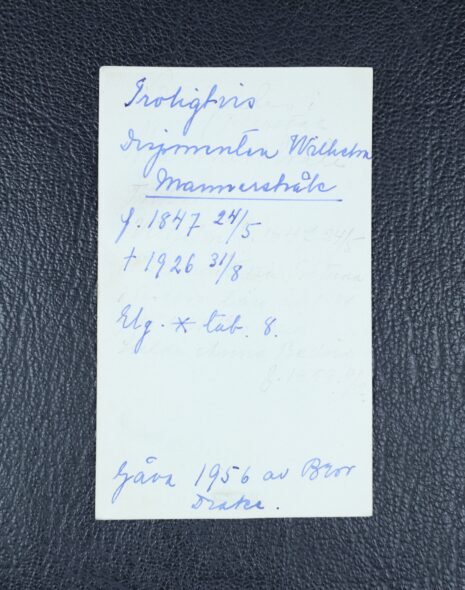 Troligtvis
Disponenten Wilhelm
Mannerstråle
f. 1847 24/5
† 1926 31/8
Elg. * tab. 8.
Gåva 1956 av Bror
Drake.